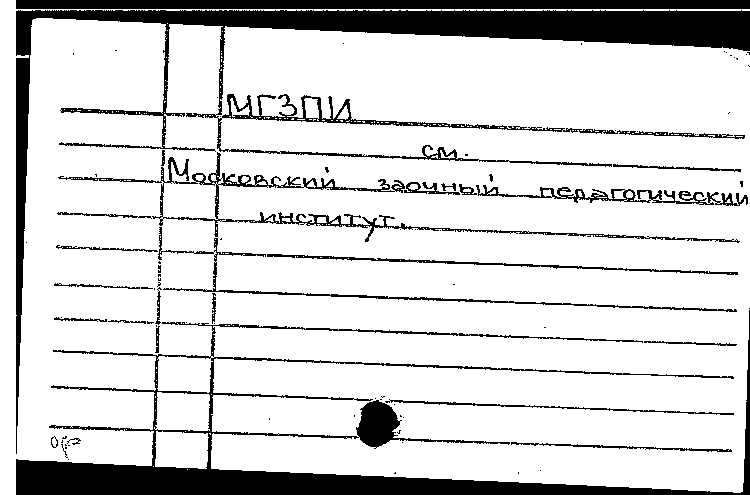 МГЗПИ
см.
Московский заочный педагогический
институт.